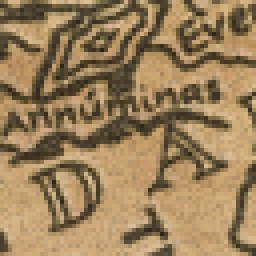 Eve
Annúminas
D A